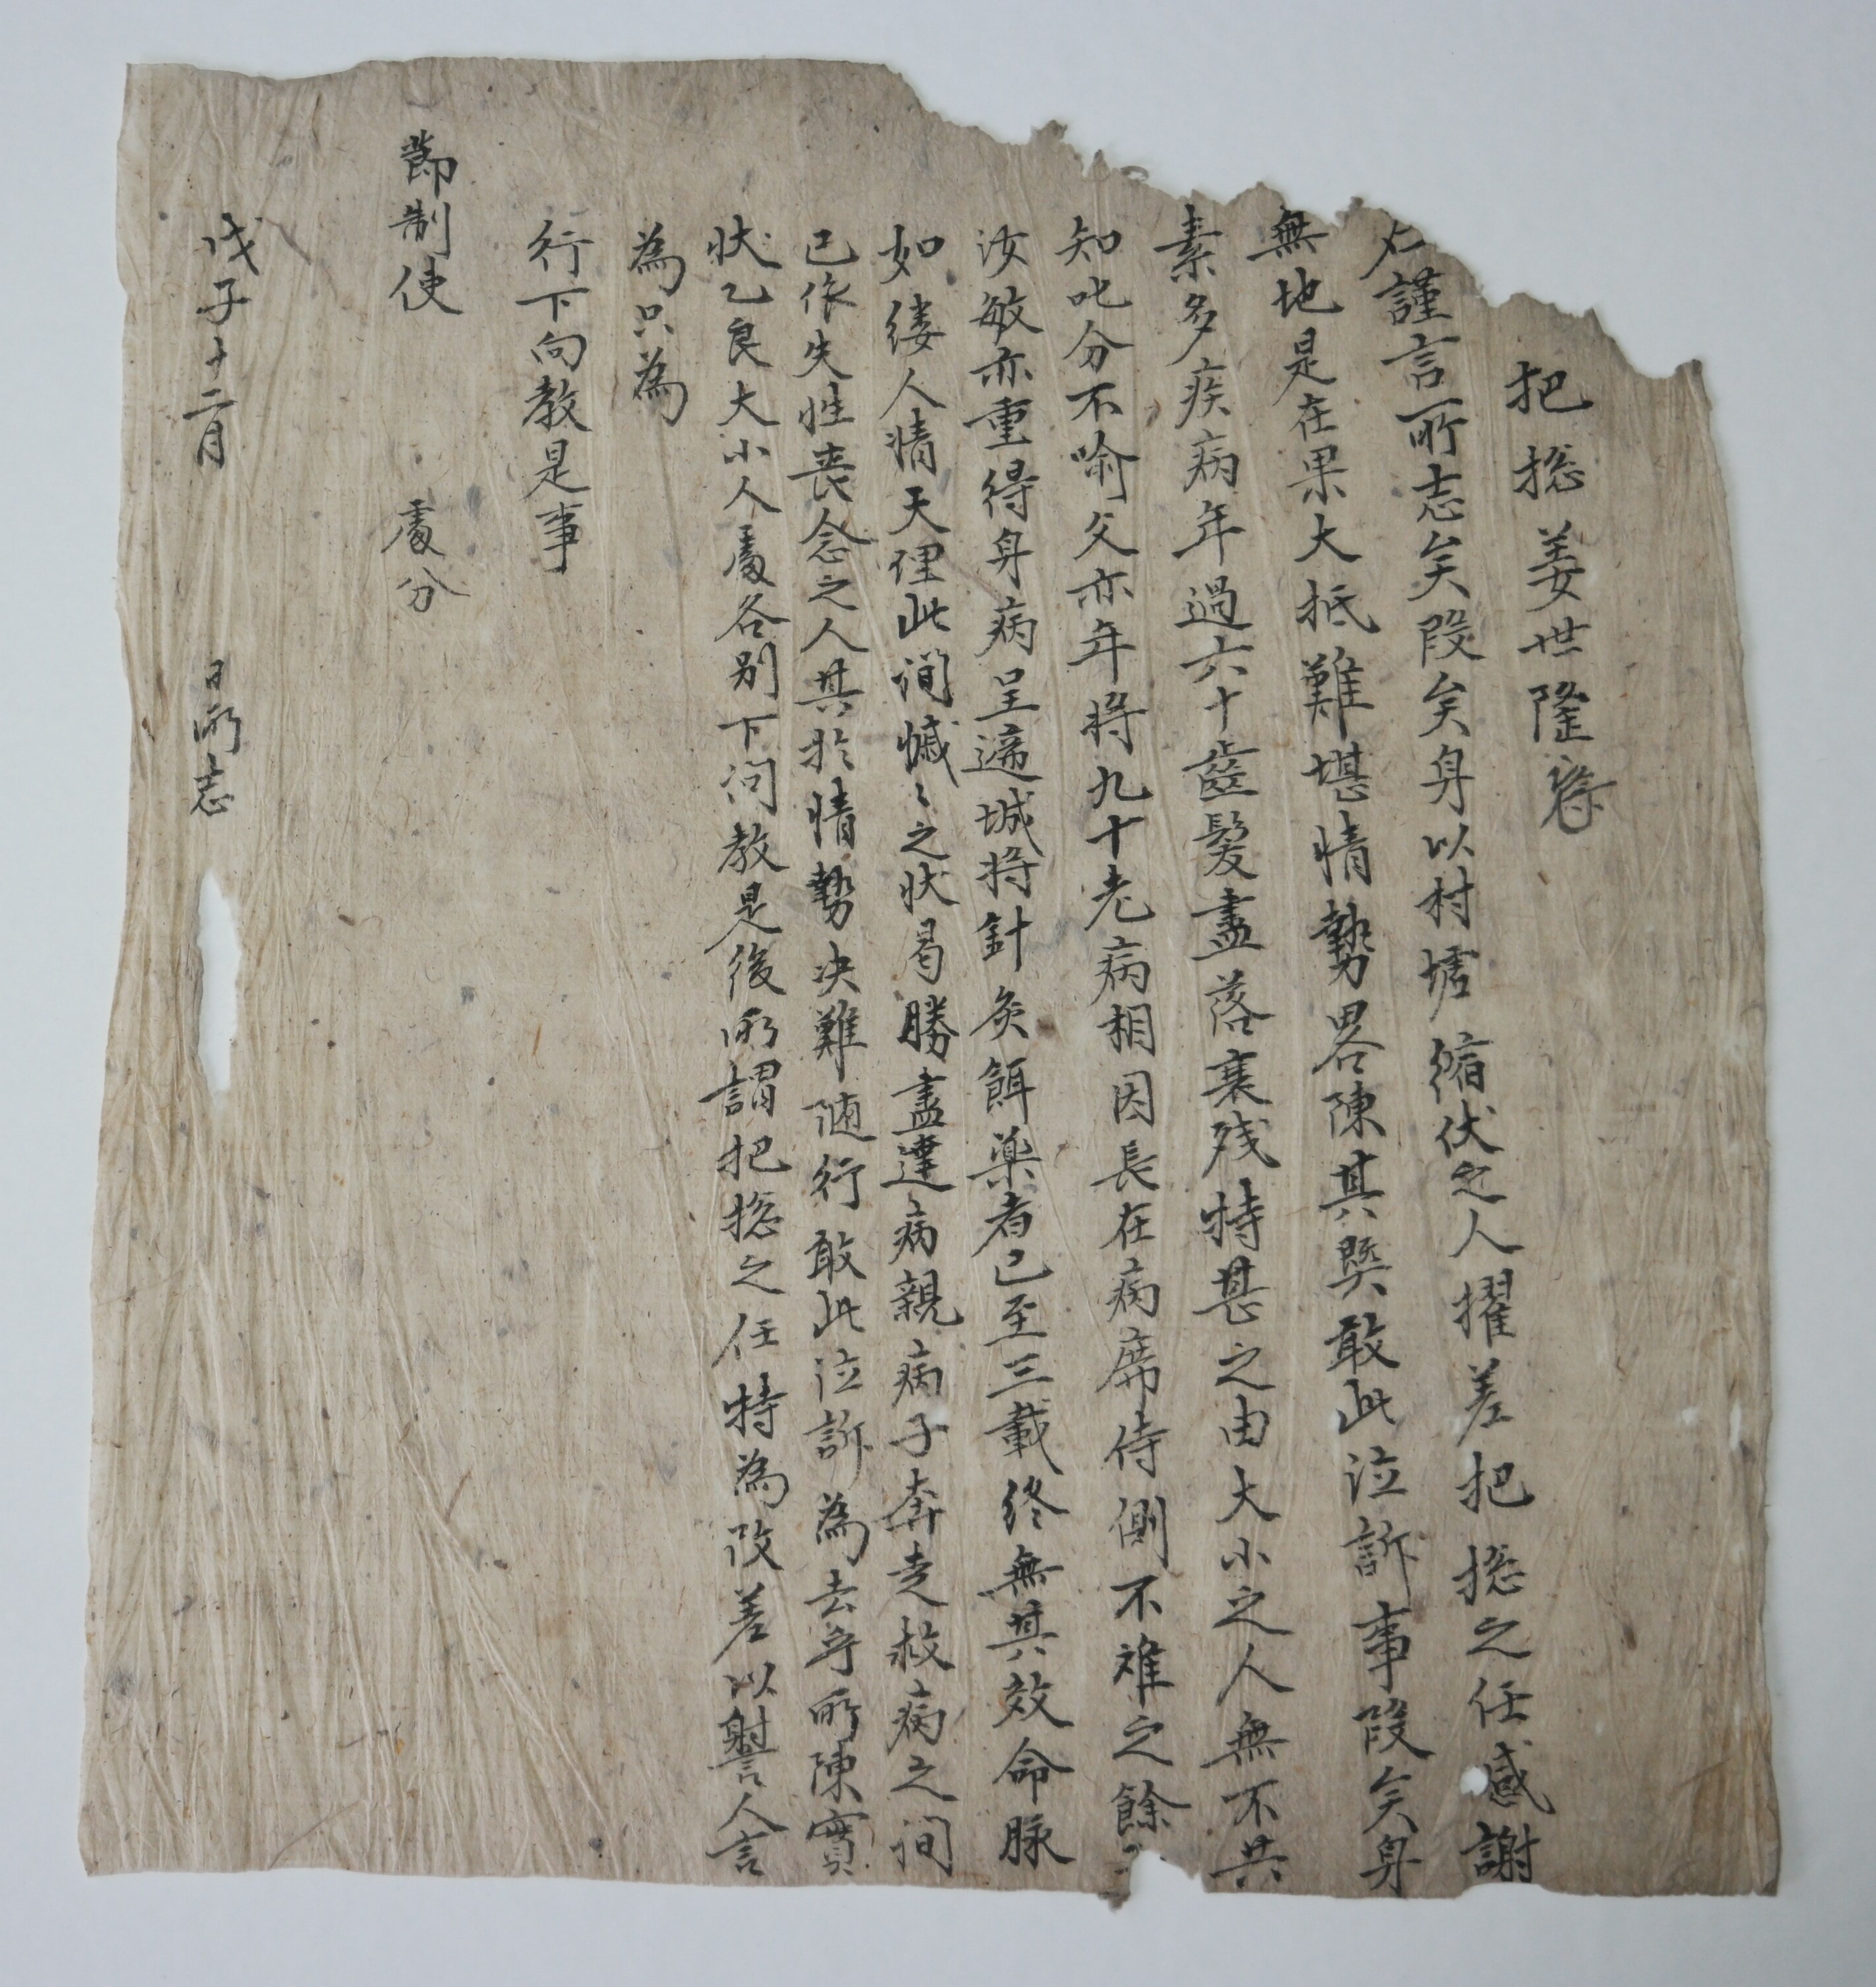 把摠姜世隆
右謹言所志矣段矣身以村墟縮伏之人擢差把摠之任感謝
無地是在果大抵難堪情勢畧陳其槩敢此泣訴事段矣身
素多疾病年過六十齒髮盡落衰残特甚之由大小之人無不共
知叱分不喻父亦年將九十老病相因長在病席侍側不離之餘
汝敏亦重得身病呈遞城將針灸餌藥者已至三載終無其效命脉
如縷人情天理此間慽〻之状曷勝盡達病親病子奔走救病之間
已依失性喪念之人其於情勢决難随行敢此泣訴為去乎所陳實
状乙良大小人處各别下问教是後所謂把摠之任特為改差以礜人言
為只為
行下向教是事
節制使 處分
戊子十二月 日所志